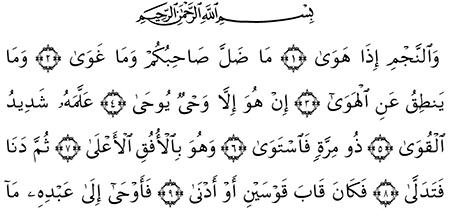 بِسْمِ ٱللَّهِ ٱلرَّحْمَٰنِ ٱلرَّحِيمِ
وَٱلنَّجْمِ إِذَا هَوَىٰ ﴿١﴾ مَا ضَلَّ صَاحِبُكُمْ وَمَا غَوَىٰ ﴿٢﴾ وَمَا
يَنطِقُ عَنِ ٱلْهَوَىٰٓ ﴿٣﴾ إِنْ هُوَ إِلَّا وَحْىٌ يُوحَىٰ ﴿٤﴾ عَلَّمَهُۥ شَدِيدُ
ٱلْقُوَىٰ ﴿٥﴾ ذُو مِرَّةٍ فَٱسْتَوَىٰ ﴿٦﴾ وَهُوَ بِٱلْأُفُقِ ٱلْأَعْلَىٰ ﴿٧﴾ ثُمَّ دَنَا
فَتَدَلَّىٰ ﴿٨﴾ فَكَانَ قَابَ قَوْسَيْنِ أَوْ أَدْنَىٰ ﴿٩﴾ فَأَوْحَىٰٓ إِلَىٰ عَبْدِهِۦ مَآ